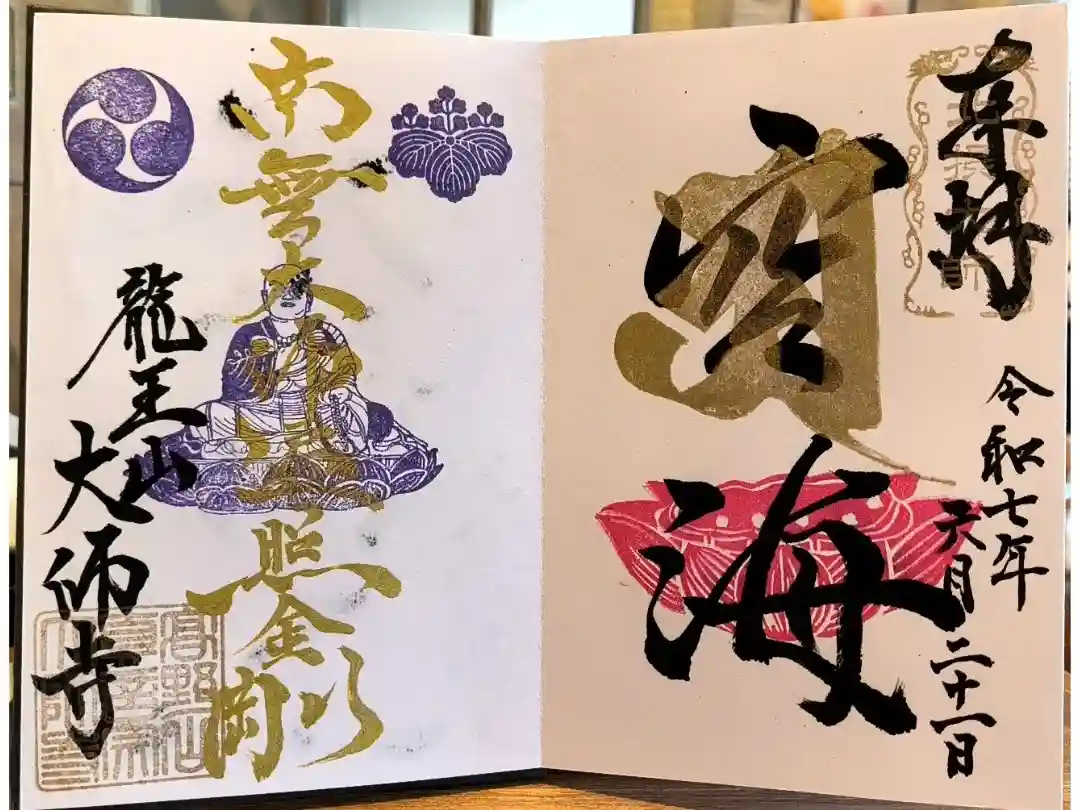 奉拝
令和七年
六月二十一日
空海
南無大師遍照金剛
龍王山
大師寺
高野山
真言宗